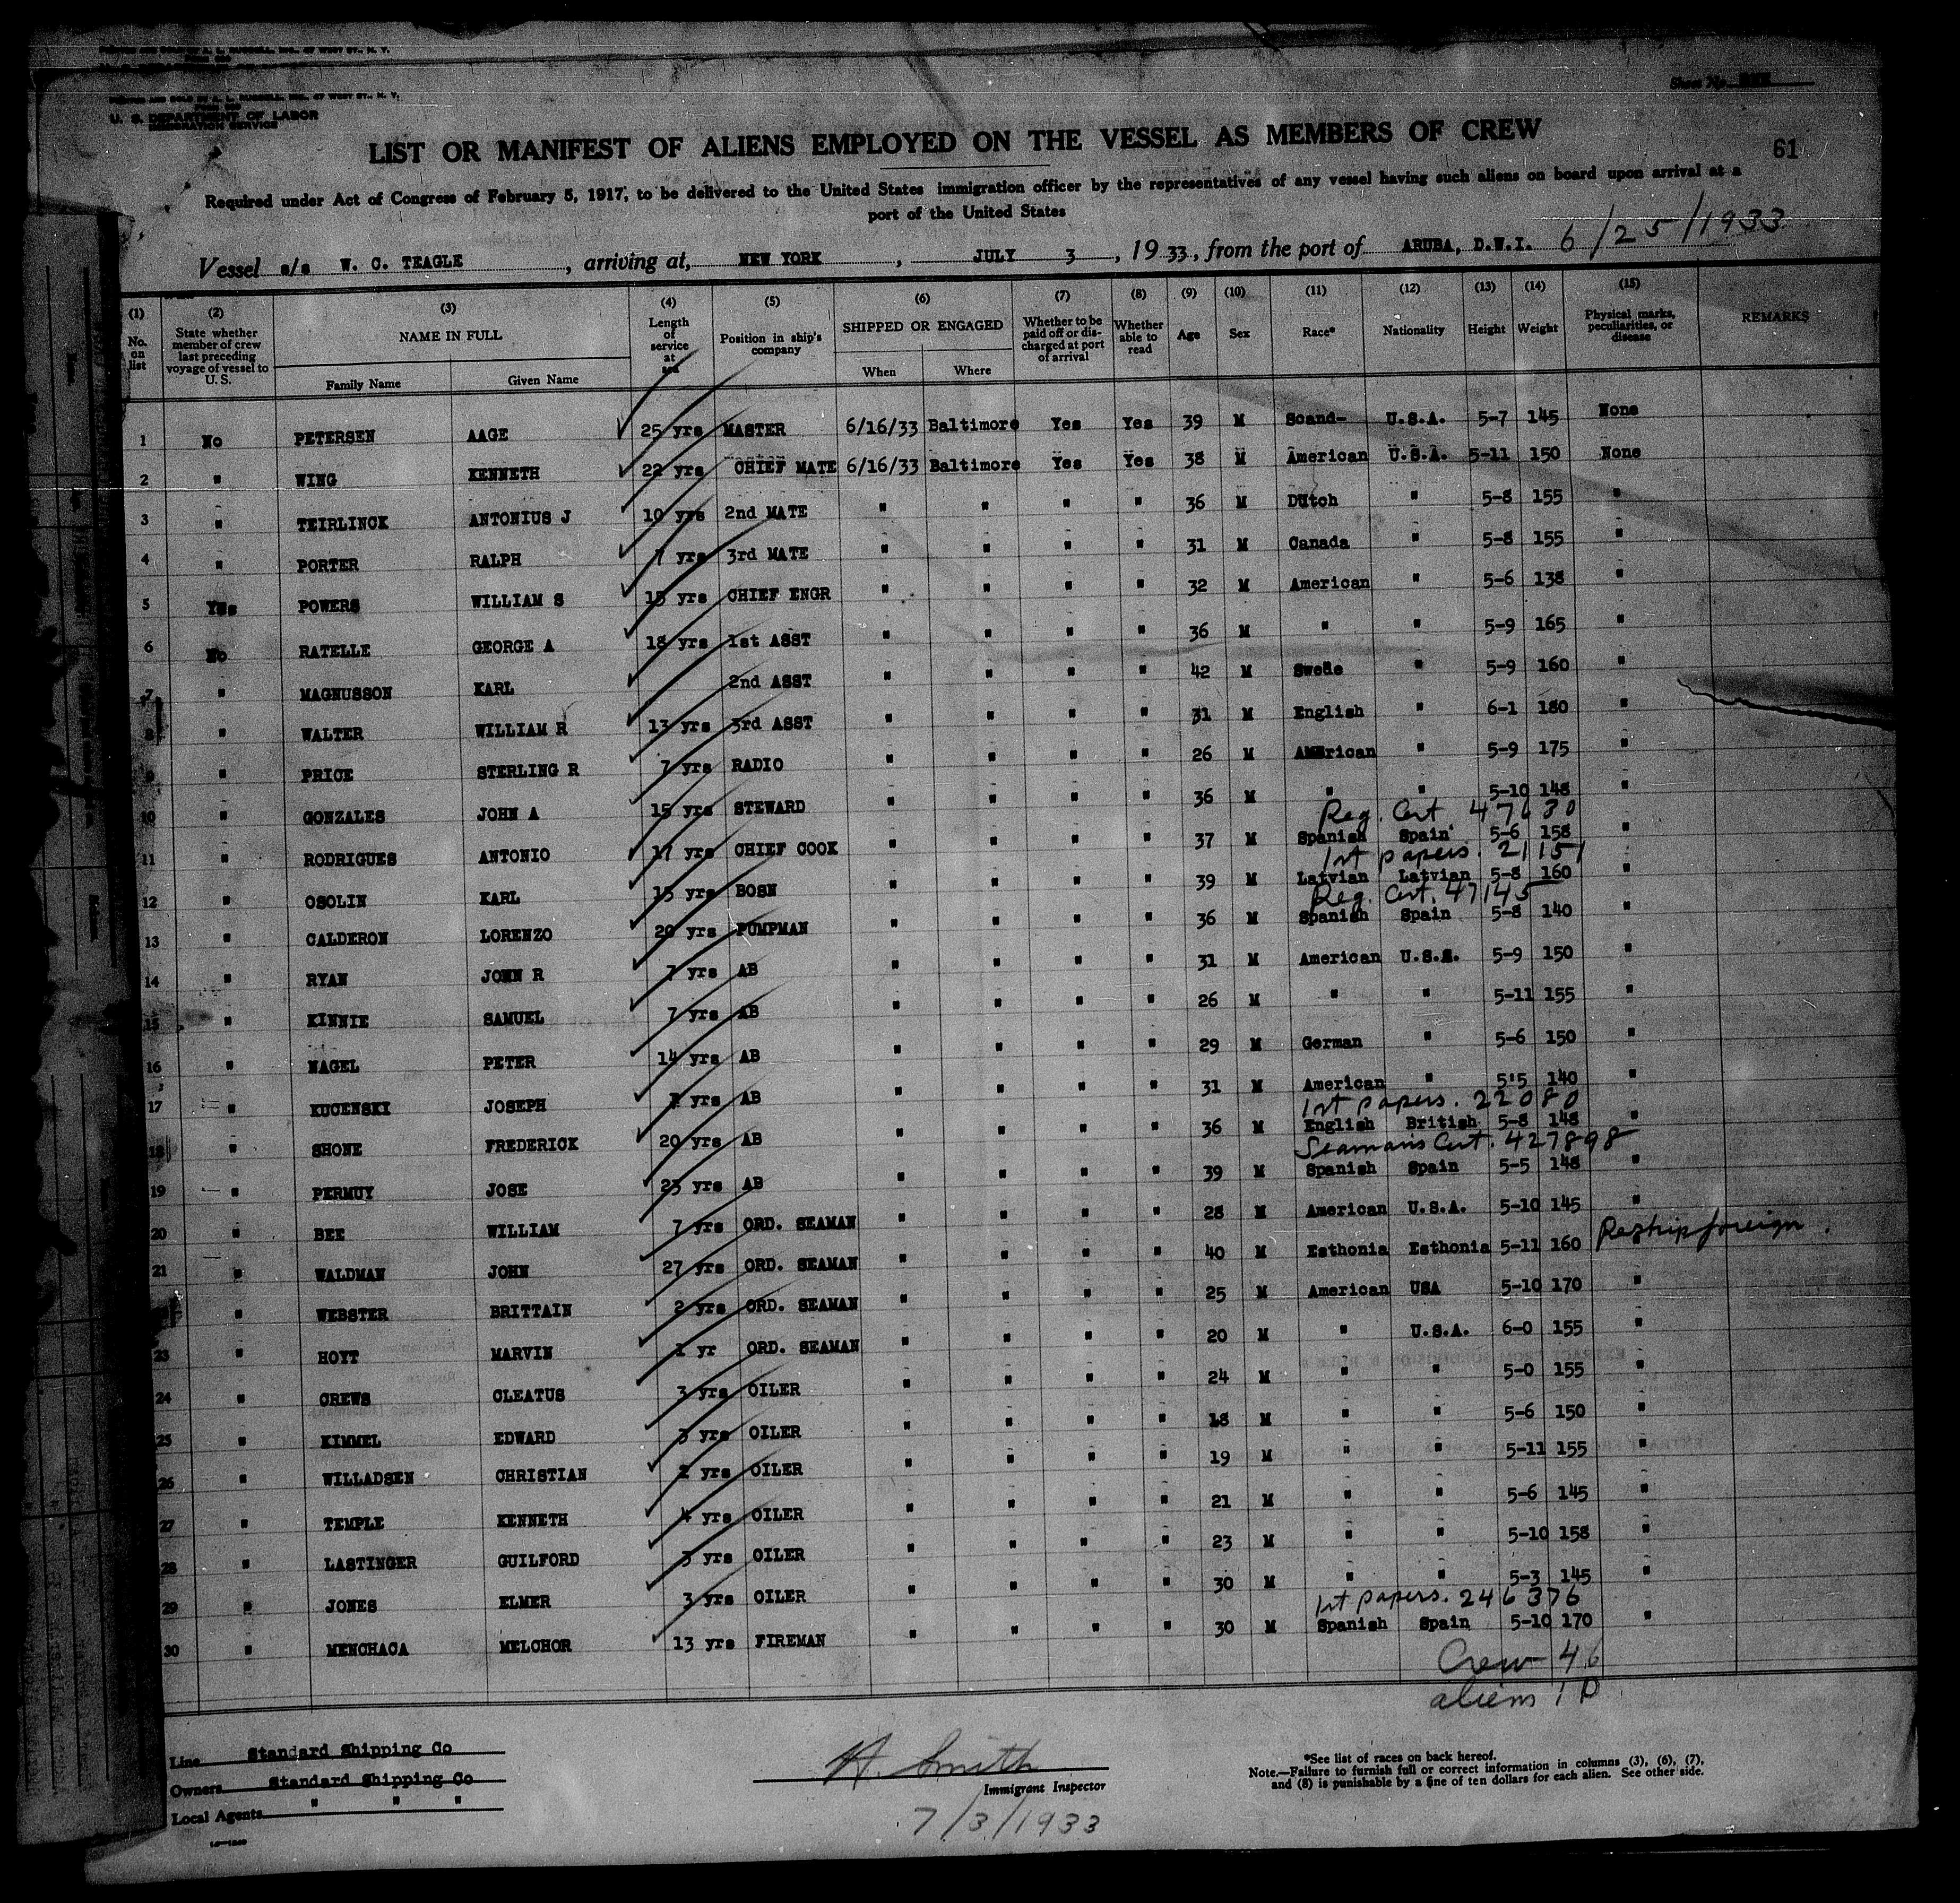 PRINTED AND SOLD BY A. L. RUSSELL, INC., 67 WEST ST., N. Y.
U. S. DEPARTMENT OF LABOR
IMMIGRATION SERVICE
Sheet No.
LIST OR MANIFEST OF ALIENS EMPLOYED ON THE VESSEL AS MEMBERS OF CREW
61
Required under Act of Congress of February 5, 1917, to be delivered to the United States immigration officer by the representatives of any vessel having such aliens on board upon arrival at a
port of the United States
Vessel s/s W. C. TEAGLE, arriving at, NEW YORK, JULY 3, 1933, from the port of ARUBA, D.W.I. 6/25/1933
(1) (2) (3) (4) (5) (6) (7) (8) (9) (10) (11) (12) (13) (14) (15)
No. on list State whether member of crew last preceding voyage of vessel to U. S. NAME IN FULL Length of service at sea Position in ship's company SHIPPED OR ENGAGED Whether to be paid off or discharged at port of arrival Whether able to read Age Sex Race* Nationality Height Weight Physical marks, peculiarities, or disease REMARKS
Family Name Given Name When Where
1 No PETERSEN AAGE 25 yrs MASTER 6/16/33 Baltimore Yes Yes 39 M Scand- U.S.A. 5-7 145 None
2 " WING KENNETH 22 yrs CHIEF MATE 6/16/33 Baltimore Yes Yes 38 M American U.S.A. 5-11 150 None
3 " TEIRLINCK ANTONIUS J 10 yrs 2nd MATE " " " " 36 M Dutch " 5-8 155 "
4 " PORTER RALPH 7 yrs 3rd MATE " " " " 31 M Canada " 5-8 155 "
5 Yes POWERS WILLIAM S 15 yrs CHIEF ENGR " " " " 32 M American " 5-6 138 "
6 No RATELLE GEORGE A 18 yrs 1st ASST " " " " 36 M " " 5-9 165 "
7 " MAGNUSSON KARL 2nd ASST " " " " 42 M Swede " 5-9 160 "
8 " WALTER WILLIAM R 13 yrs 3rd ASST " " " " 31 M English " 6-1 180 "
9 " PRICE STERLING R 7 yrs RADIO " " " " 26 M American " 5-9 175 "
10 " GONZALES JOHN A 15 yrs STEWARD " " " " 36 M " " 5-10 148 "
Reg. Cert 47630
11 " RODRIGUES ANTONIO 17 yrs CHIEF COOK " " " " 37 M Spanish Spain 5-6 158 "
1st papers. 21151
12 " OSOLIN KARL 15 yrs BOSN " " " " 39 M Latvian Latvian 5-8 160 "
Reg. Cert. 47145
13 " CALDERON LORENZO 20 yrs PUMPMAN " " " " 36 M Spanish Spain 5-8 140 "
14 " RYAN JOHN R 7 yrs AB " " " " 31 M American U.S.A. 5-9 150 "
15 " KINNIE SAMUEL 7 yrs AB " " " " 26 M " " 5-11 155 "
16 " NAGEL PETER 14 yrs AB " " " " 29 M German " 5-6 150 "
17 " KUCENSKI JOSEPH 7 yrs AB " " " " 31 M American " 5'5 140 "
1st papers. 22080
18 " SHONE FREDERICK 20 yrs AB " " " " 36 M English British 5-8 148 "
Seamans Cert. 427898
19 " PERMUY JOSE 23 yrs AB " " " " 39 M Spanish Spain 5-5 148 "
20 " BEE WILLIAM 7 yrs ORD. SEAMAN " " " " 28 M American U.S.A. 5-10 145 "
21 " WALDMAN JOHN 27 yrs ORD. SEAMAN " " " " 40 M Esthonia Esthonia 5-11 160 Reship foreign.
" WEBSTER BRITTAIN 2 yrs ORD. SEAMAN " " " " 25 M American USA 5-10 170 "
23 " HOYT MARVIN 1 yr ORD. SEAMAN " " " " 20 M " U.S.A. 6-0 155 "
24 " CREWS CLEATUS 3 yrs OILER " " " " 24 M " " 5-0 155 "
25 " KIMMEL EDWARD 3 yrs OILER " " " " 18 M " " 5-6 150 "
26 " WILLADSEN CHRISTIAN 2 yrs OILER " " " " 19 M " " 5-11 155 "
27 " TEMPLE KENNETH 4 yrs OILER " " " " 21 M " " 5-6 145 "
28 " LASTINGER GUILFORD 3 yrs OILER " " " " 23 M " " 5-10 158 "
29 " JONES ELMER 3 yrs OILER " " " " 30 M " " 5-3 145 "
1st papers. 246376
30 " MENCHACA MELCHOR 13 yrs FIREMAN " " " " 30 M Spanish Spain 5-10 170 "
Crew 46
aliens 10
Line Standard Shipping Co
Owners Standard Shipping Co
Local Agents " " "
H. Smith
Immigrant Inspector
7/3/1933
*See list of races on back hereof.
Note.—Failure to furnish full or correct information in columns (3), (6), (7),
and (8) is punishable by a fine of ten dollars for each alien. See other side.